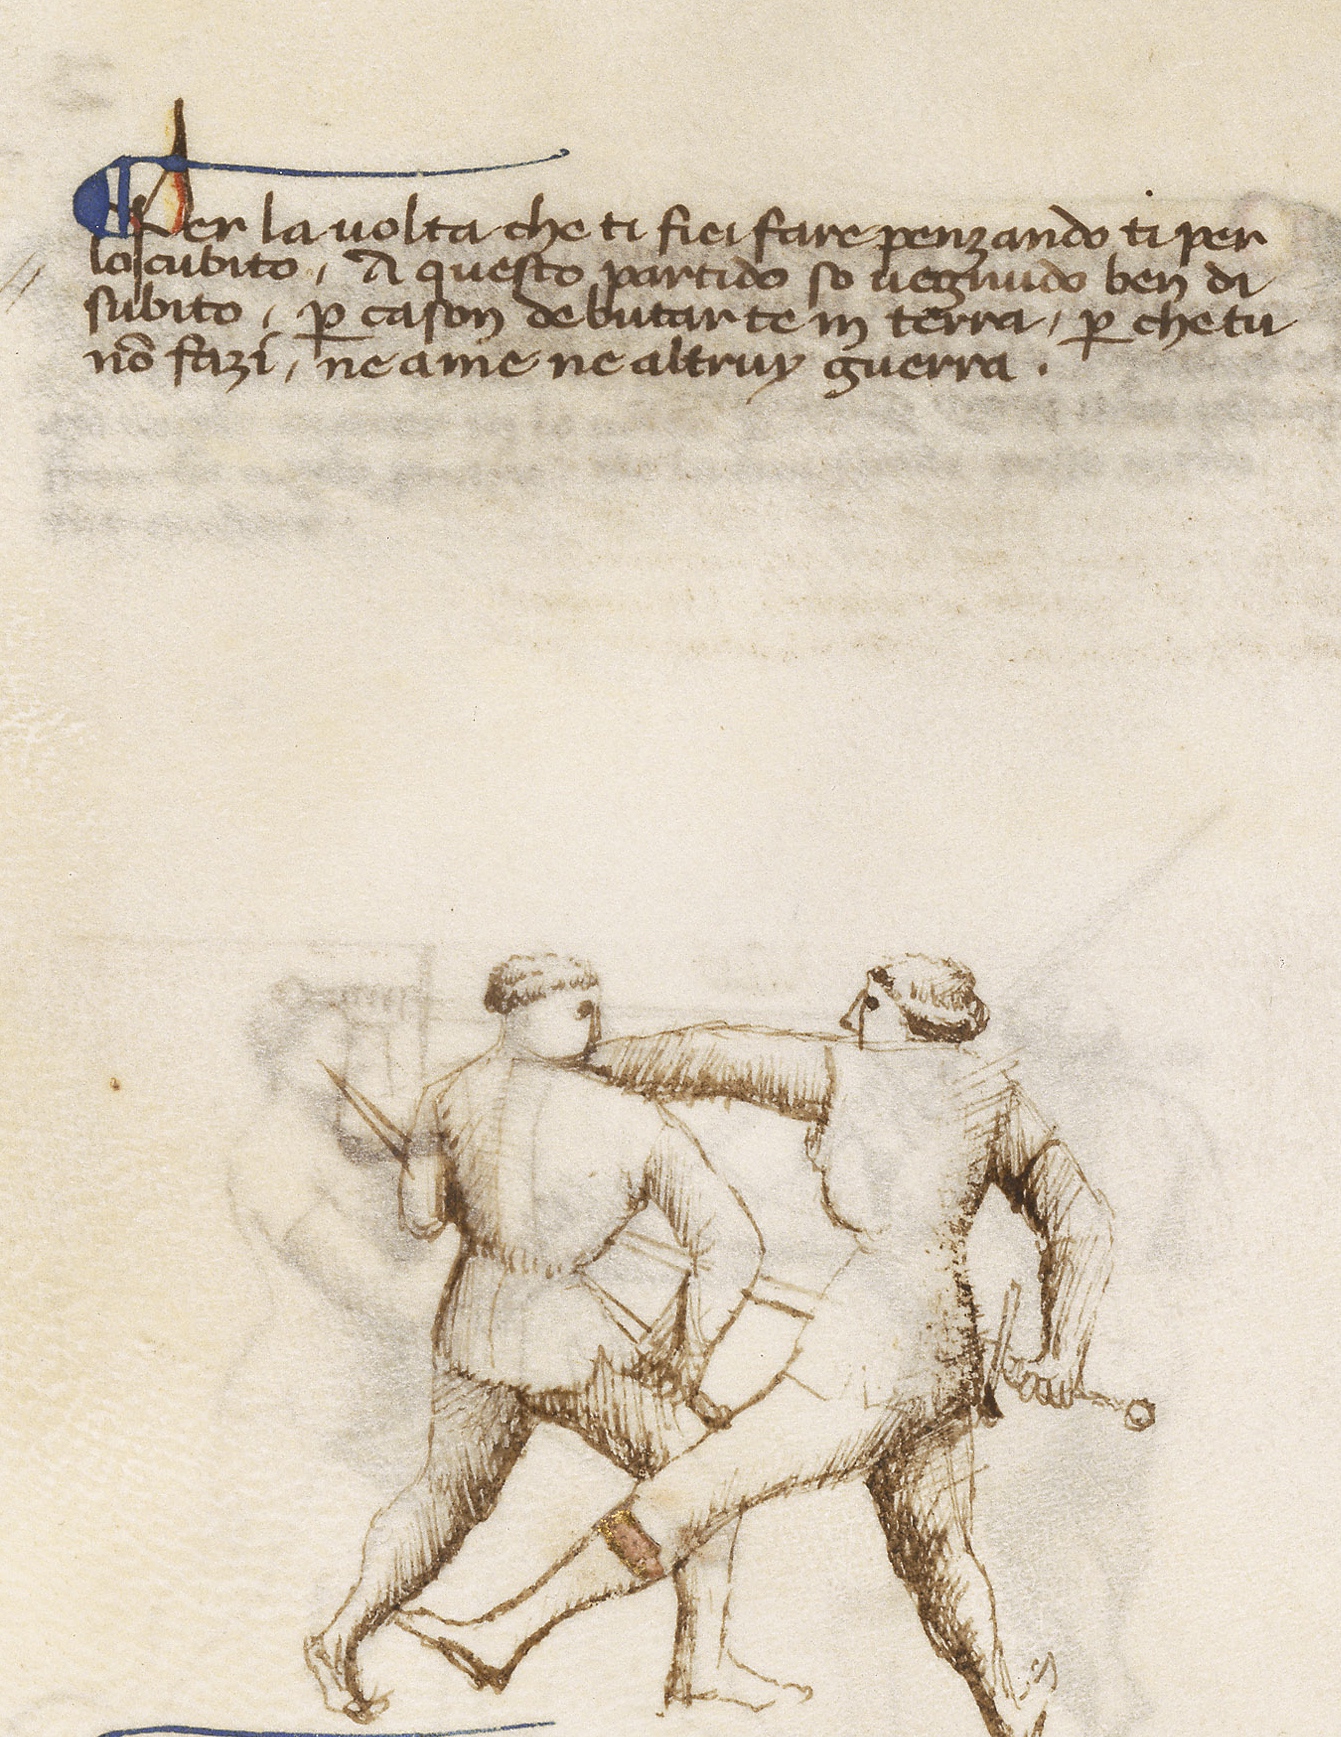 Per la uolta che ti fici fare penzando ti per
lo cubito, A questo partido so uegnudo ben di
subito, p cason de butar te in terra, p che tu
nō fazi, ne a me ne altruy guerra.